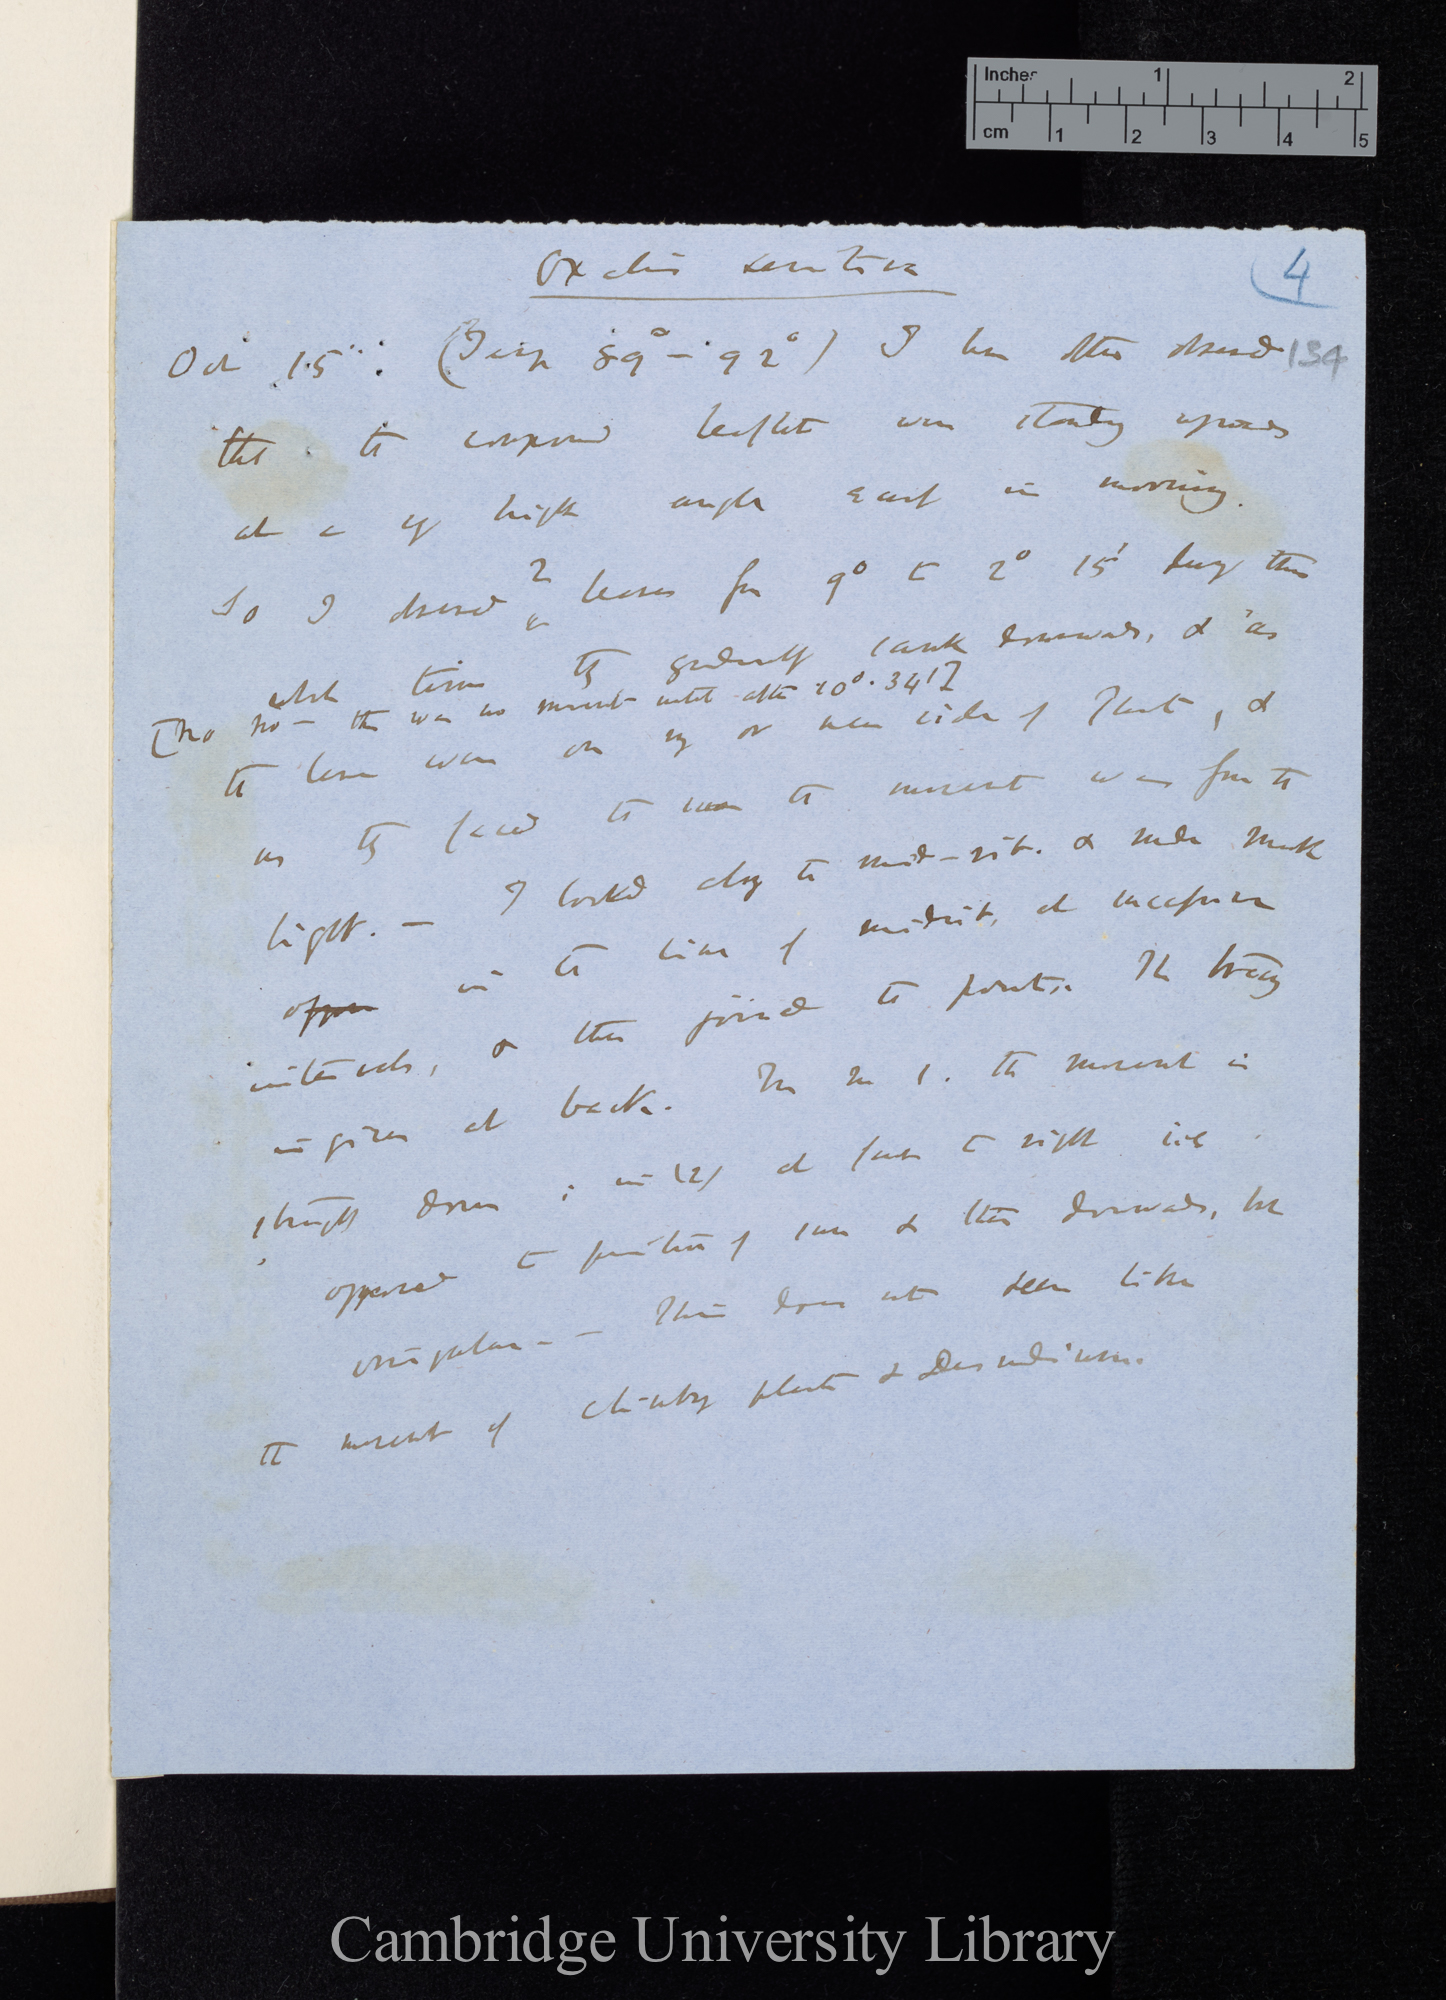 Inches 1 2
cm 1 2 3 4 5
Oxalis sensitiva
4
Oct 15th: (Temp 89° - 92°) I have often observed
134
that the compound leaflets were standing upwards
at a high angle early in morning.
So I observed 2 leaves from 9° to 2° 15' during this
whole time they gradually sank downwards, & as
[No No — there was no movement until after 10°. 34']
the leaves were on my or near side of Plant, &
as they faced the the movement was from the
light. — I looked along the mid-rib. & made mark
in the line of midrib, at
intervals, & then joined the points. The tracing
is given at back. In no 1. the movement is
straight down; in (2) at first to right side
opposed to position of sun & then downwards, but
irregular — This does not seem like
the movement of climbing plants & Desmodium.
Cambridge University Library